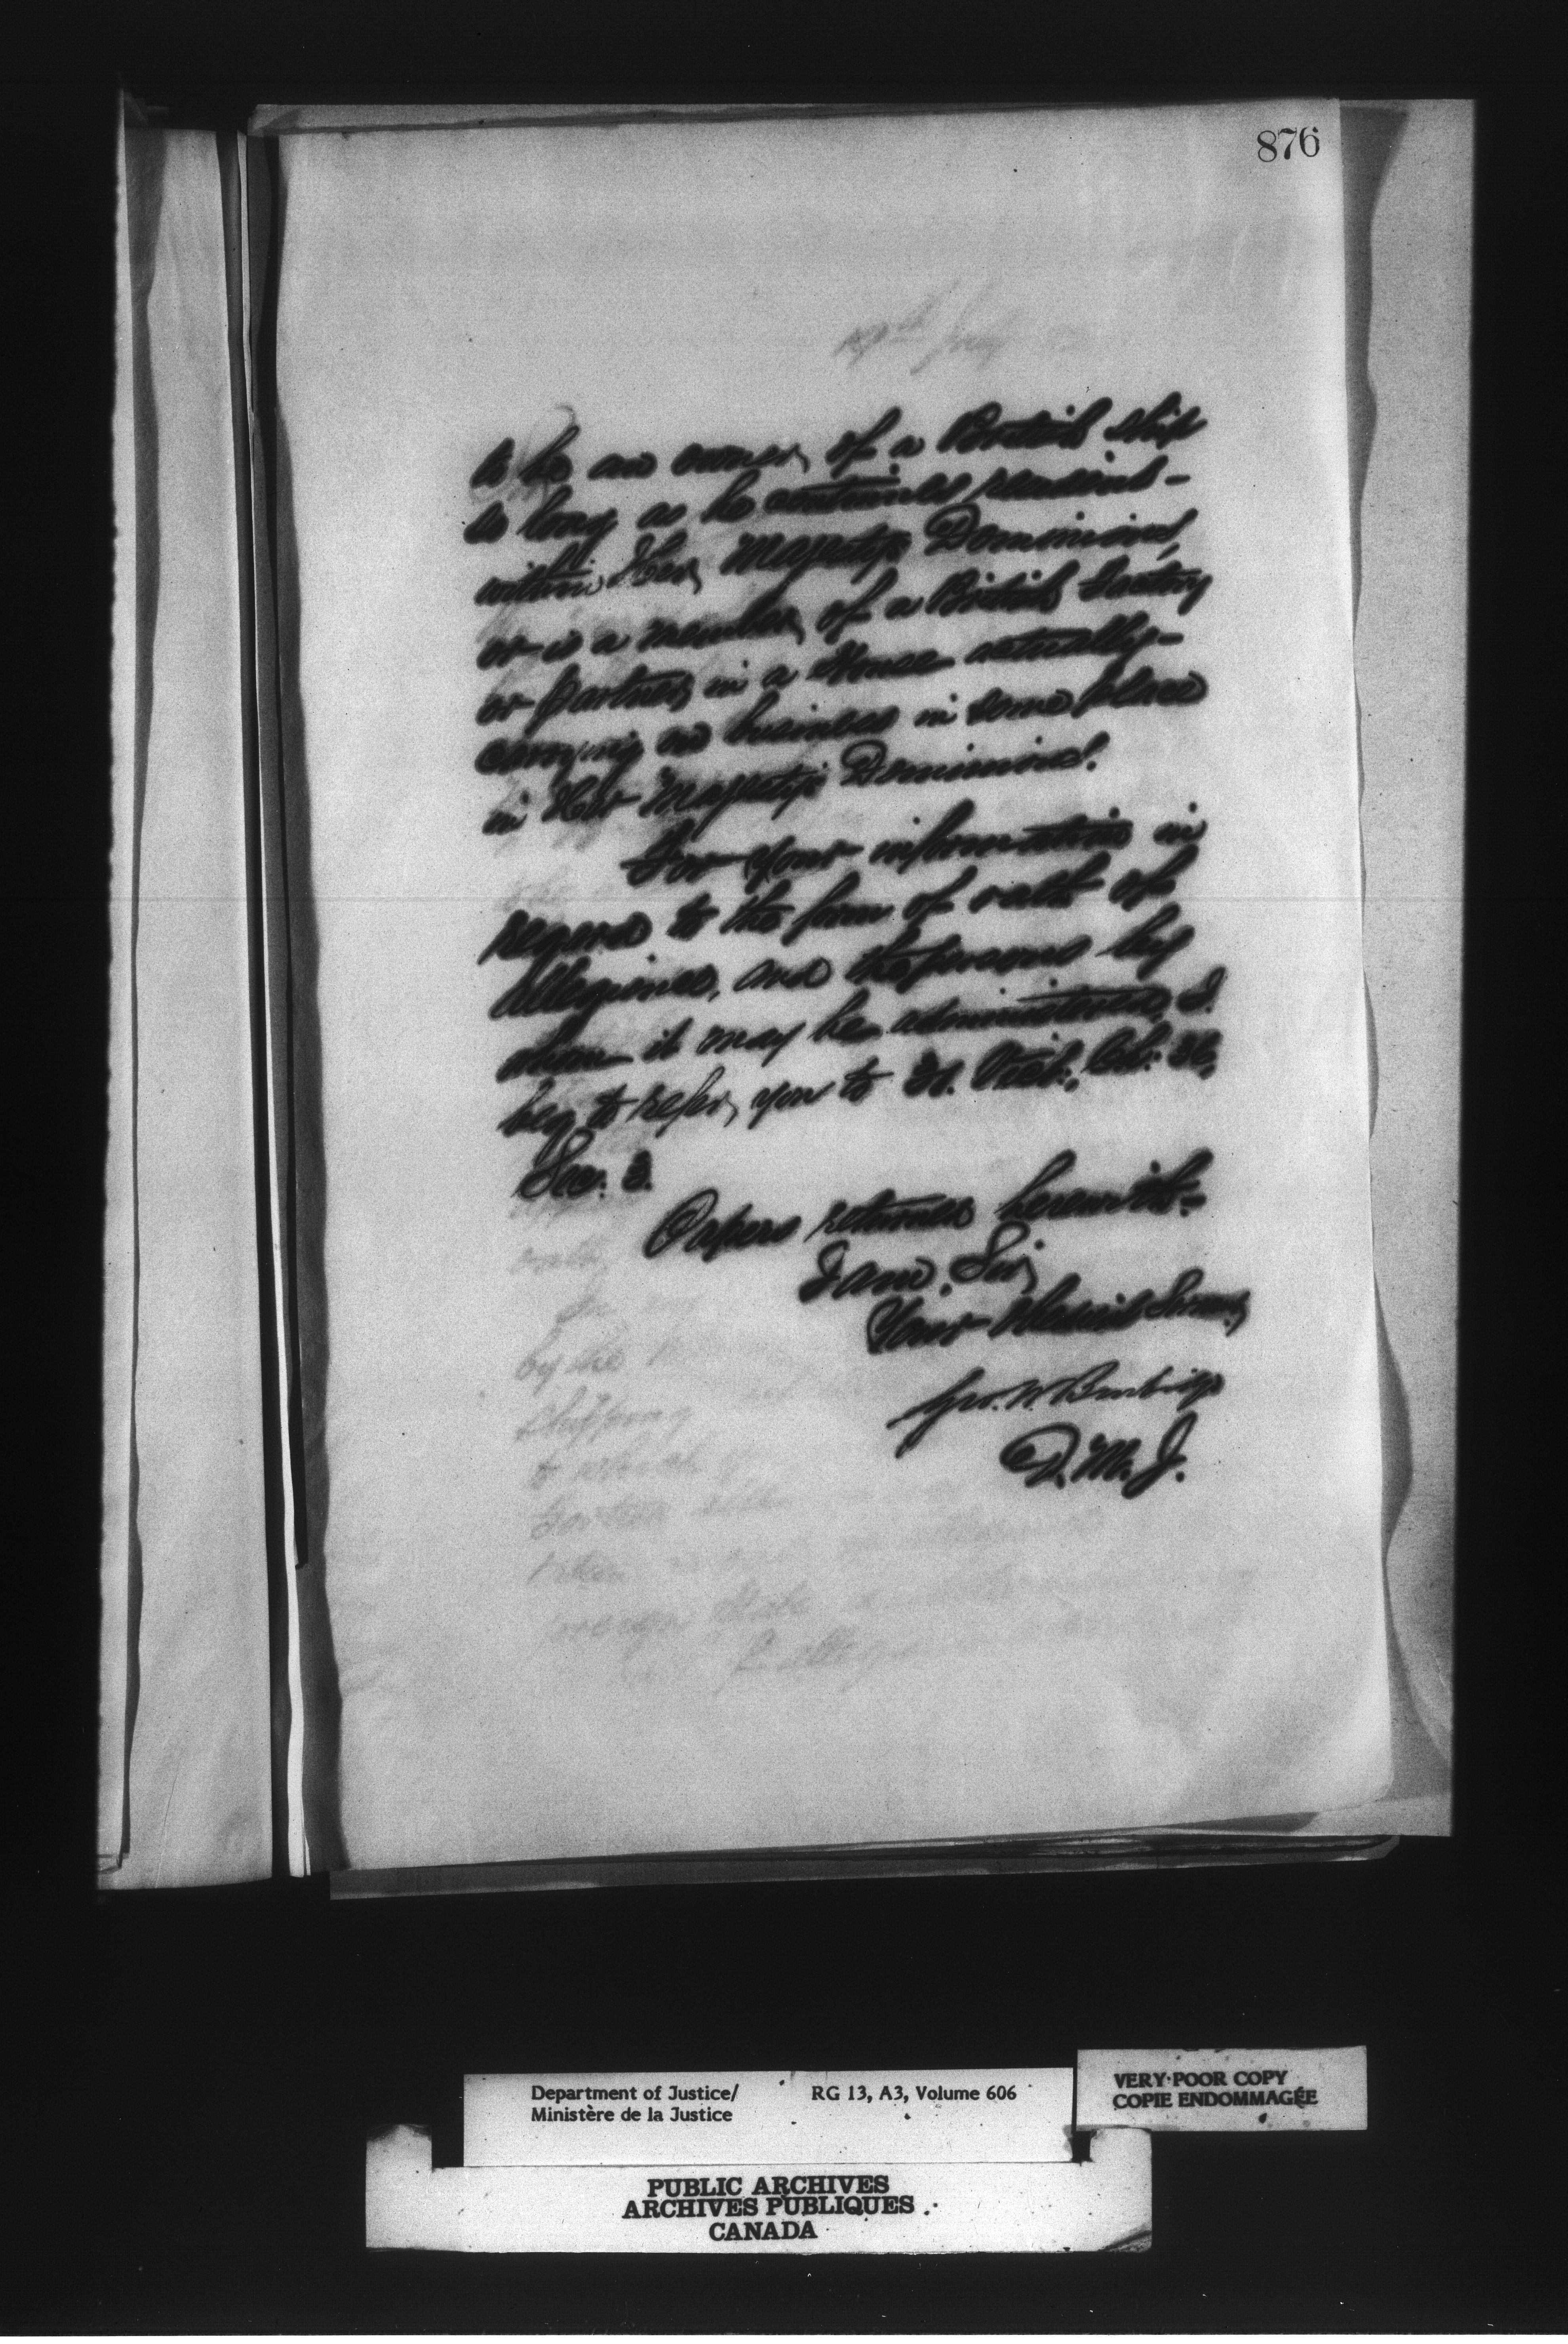 876
to be an owner of a British ship
so long as he continues resident-
within Her Majesty's Dominions,
or is a member of a British Factory
or partner in a House actually-
carrying on business in some place
in Her Majesty's Dominions.
For your information in
regard to the form of oath of
allegiance, and the persons by
whom it may be administered, I
beg to refer you to 31. Vict:, Ch:
Sec. 3.
Papers returned herewith.-
I am, Sir,
Your Obedient Servant,
Geo. W. Burbidge
D. M. J.
by the
shipping
to which
foreign State
Department of Justice/ RG 13, A3, Volume 606
Ministère de la Justice
VERY POOR COPY
COPIE ENDOMMAGÉE
PUBLIC ARCHIVES
ARCHIVES PUBLIQUES
CANADA